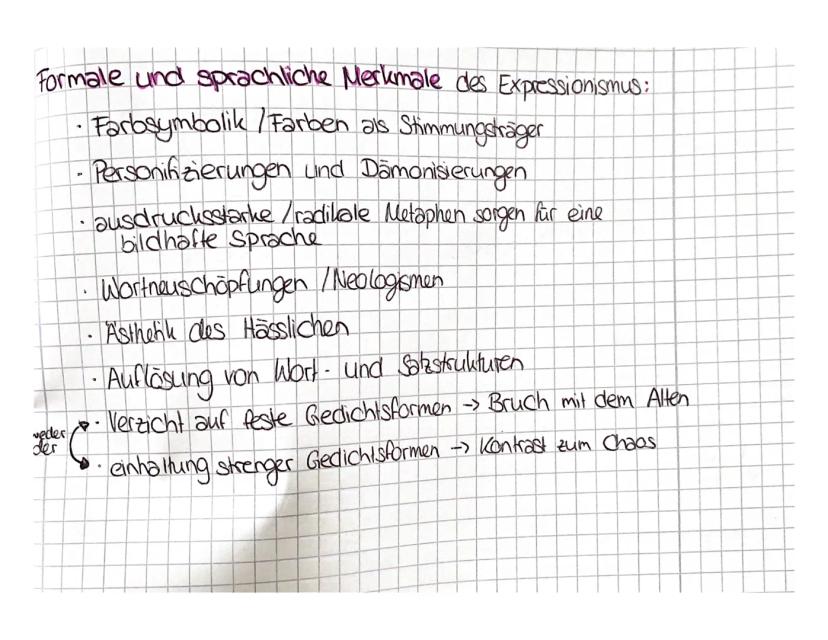 Formale und sprachliche Merkmale des Expressionismus:
· Farbsymbolik / Farben als Stimmungsträger
· Personifizierungen und Dämonisierungen
· ausdrucksstarke / radikale Metaphen sorgen für eine
bildhafte Sprache
· Wortneuschöpfungen / Neologismen
· Ästhetik des Hässlichen
· Auflösung von Wort- und Satzstrukturen
· Verzicht auf feste Gedichtsformen -> Bruch mit dem Alten
weder
der
· einhaltung strenger Gedichtsformen -> Kontrast zum Chaos